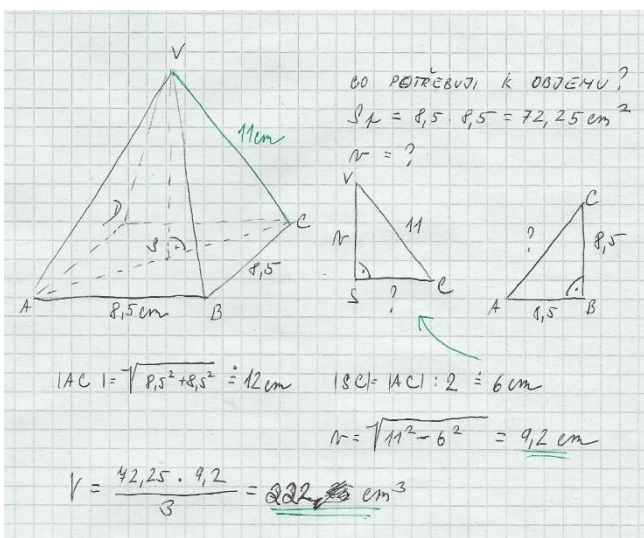 V
11cm
D
C
S
8,5
A
8,5cm
B
CO POTŘEBUJI K OBJEMU?
Sp = 8,5 . 8,5 = 72,25 cm²
v = ?
V
v
11
S
?
C
C
?
8,5
A
8,5
B
|AC| = √8,5²+8,5² ≐ 12cm
|SC| = |AC| : 2 ≐ 6cm
v = √11² - 6² = 9,2 cm
V = 72,25 . 9,2 / 3 = 222 cm³